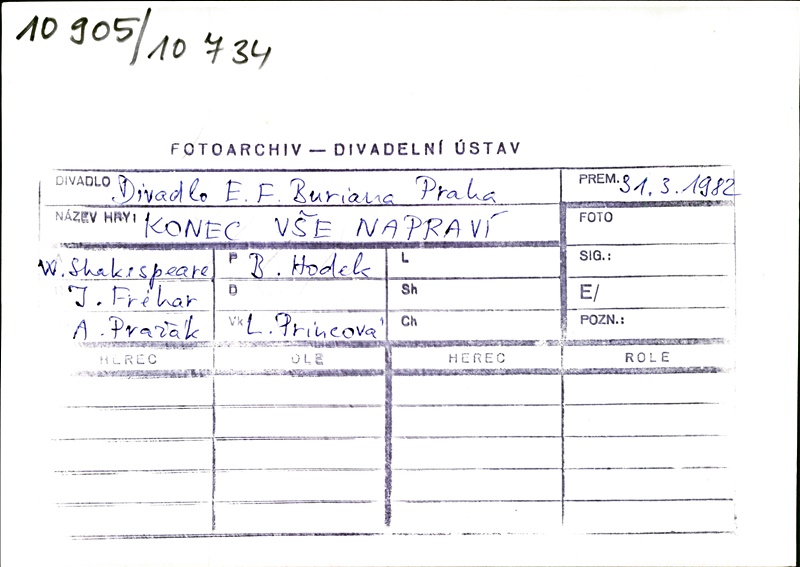 10 905/10 734
FOTOARCHIV — DIVADELNÍ ÚSTAV
DIVADLO Divadlo E. F. Buriana Praha PREM. 31. 3. 1982
NÁZEV HRY: KONEC VŠE NAPRAVÍ FOTO
W. Shakespeare P B. Hodek L SIG.:
J. Fréhar D Sh E/
A. Pražák Vk L. Princová Ch POZN.:
HEREC OLE HEREC ROLE